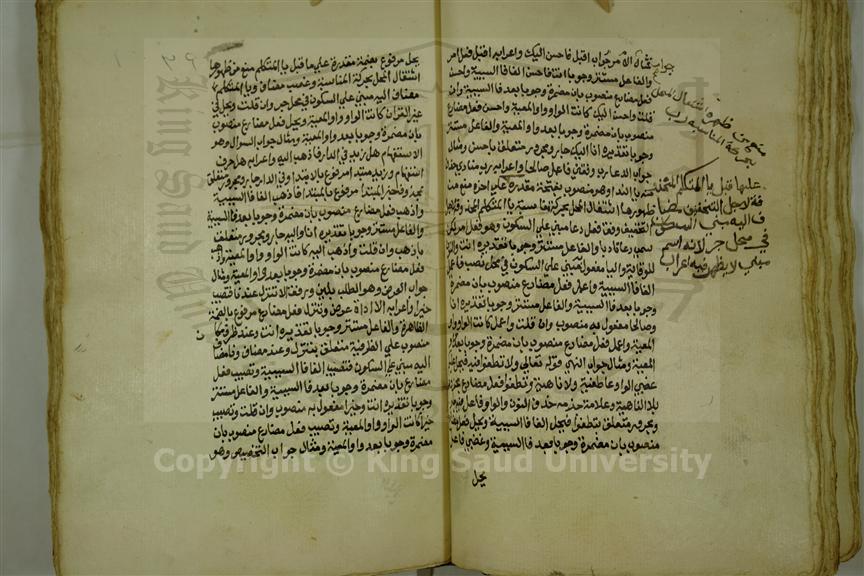 مثال الامر جواب اقبل فاحسن اليك واعرابه اقبل فعل امر
والفاعل مستتر وجوبا انت فاحسن الفا فا السببية واحسن
فعل مضارع منصوب بان مضمرة وجوبا بعد فا السببية وان
قلت واحسن اليك كانت الواو واو المعية واحسن فعل مضارع
منصوب بان مضمرة وجوبا بعد واو المعية والفاعل مستتر
وجوبا تقديره انا اليك جار ومجرور متعلق باحسن ومثال
جواب الدعا رب وفقني فاعمل صالحا واعرابه رب منادى حذف
يا الندا وهو منصوب بفتحة مقدرة على اخره منع من
ظهورها اشتغال المحل بحركة
التخفيف وفقنى فعل دعا مبني على السكون وهو فعل امر لكن
سمى دعا تادبا والفاعل مستتر وجوبا تقديره انت والنون
للوقاية واليا مفعول به مبني على السكون في محل نصب فاعمل
الفا فا السببية واعمل فعل مضارع منصوب بان مضمرة
وجوبا بعد فا السببية والفاعل مستتر وجوبا تقديره انا
وصالحا مفعول به منصوب وان قلت واعمل كانت الواو واو
المعية واعمل فعل مضارع منصوب بان مضمرة وجوبا بعد واو
المعية ومثال جواب النهي قوله تعالى ولا تطغوا فيه فيحل عليكم
غضبي الواو عاطفة ولا ناهية وتطغوا فعل مضارع مجزوم
بلا الناهية وعلامة جزمه حذف النون والواو فاعل فيه جار
ومجرور متعلق بتطغوا فيحل الفا فا السببية ويحل فعل مضارع
منصوب بان مضمرة وجوبا بعد فا السببية وغضبي فاعل
يحل
جواب
منع من ظهوره اشتغال المحل
بحركة المناسبة رب
عليها قبل يا المتكلم المحذوفة
فة لاجل التخفيف مضا
ف اليه مبني السكون
في محل جر لانه اسم
مبني لا يظهر فيه اعراب
٢٦
يحل مرفوع بضمة مقدرة على ما قبل يا المتكلم منع من ظهورها
اشتغال المحل بحركة المناسبة وغضب مضاف ويا المتكلم
مضاف اليه مبني على السكون في محل جر وان قلت ويحل في
غير القران كانت الواو واو المعية ويحل فعل مضارع منصوب
بان مضمرة وجوبا بعد واو المعية ومثال جواب السوال وهو
الاستفهام هل زيد في الدار فاذهب اليه واعرابه هل حرف
استفهام وزيد مبتدا مرفوع بالابتدا وفي الدار جار ومجرور متعلق
بمحذوف خبر المبتدا مرفوع بالمبتدا فاذهب الفا فا السببية
واذهب فعل مضارع منصوب بان مضمرة وجوبا بعد فا السببية
والفاعل مستتر وجوبا تقديره انا واليه جار ومجرور متعلق
باذهب وان قلت واذهب اليه كانت الواو واو المعية واذهب
فعل مضارع منصوب بان مضمرة وجوبا بعد واو المعية ومثال
جواب العرض وهو الطلب بلين ورفق الا تنزل عندنا فتصيب
خيرا واعرابه الا اداة عرض وتنزل فعل مضارع مرفوع بالضمة
الظاهرة والفاعل مستتر وجوبا تقديره انت وعند ظرف مكان
منصوب على الظرفية متعلق بتنزل وعند مضاف ونا مضاف
اليه مبني على السكون فتصيب الفا فا السببية وتصيب فعل
مضارع بان مضمرة وجوبا بعد فا السببية والفاعل مستتر
وجوبا تقديره انت وخيرا مفعول به منصوب وان قلت وتصيب
خيرا كانت الواو واو المعية وتصيب فعل مضارع منصوب بان
مضمرة وجوبا بعد واو المعية ومثال جواب التخضيص وهو
Copyright © King Saud University
King Saud